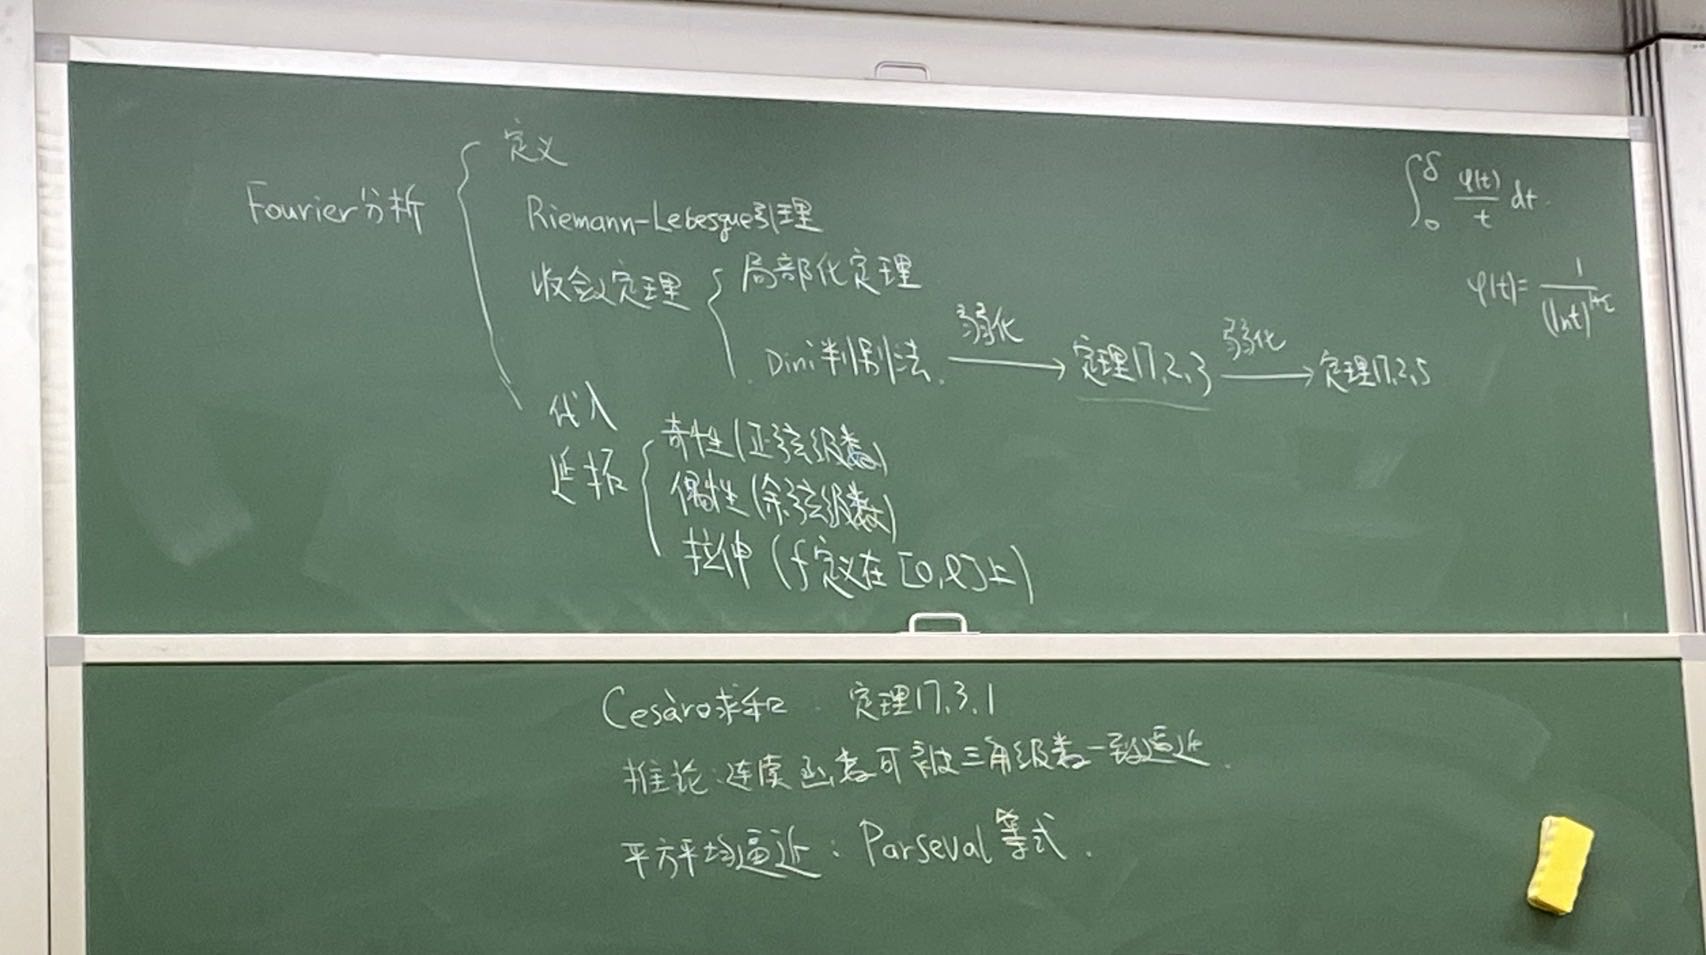 Fourier分析
定义
Riemann-Lebesgue引理
收敛定理
局部化定理
Dini判别法. 弱化 定理17.2.3 弱化 定理17.2.5
代入
延拓
奇性(正弦级数)
偶性(余弦级数)
拉伸(f定义在[0,ℓ]上)
∫₀^δ φ(t)/t dt.
φ(t)= 1/(ln t)^{1+ε}
Cesàro求和 定理17.3.1
推论:连续函数可被三角级数一致逼近.
平方平均逼近:Parseval等式.